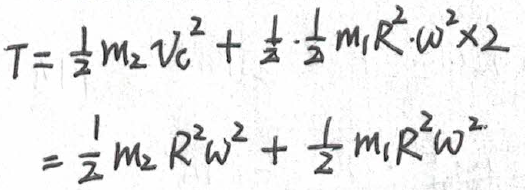 T = \frac{1}{2} m_2 v_c^2 + \frac{1}{2} \cdot \frac{1}{2} m_1 R^2 \cdot \omega^2 \times 2
= \frac{1}{2} m_2 R^2 \omega^2 + \frac{1}{2} m_1 R^2 \omega^2